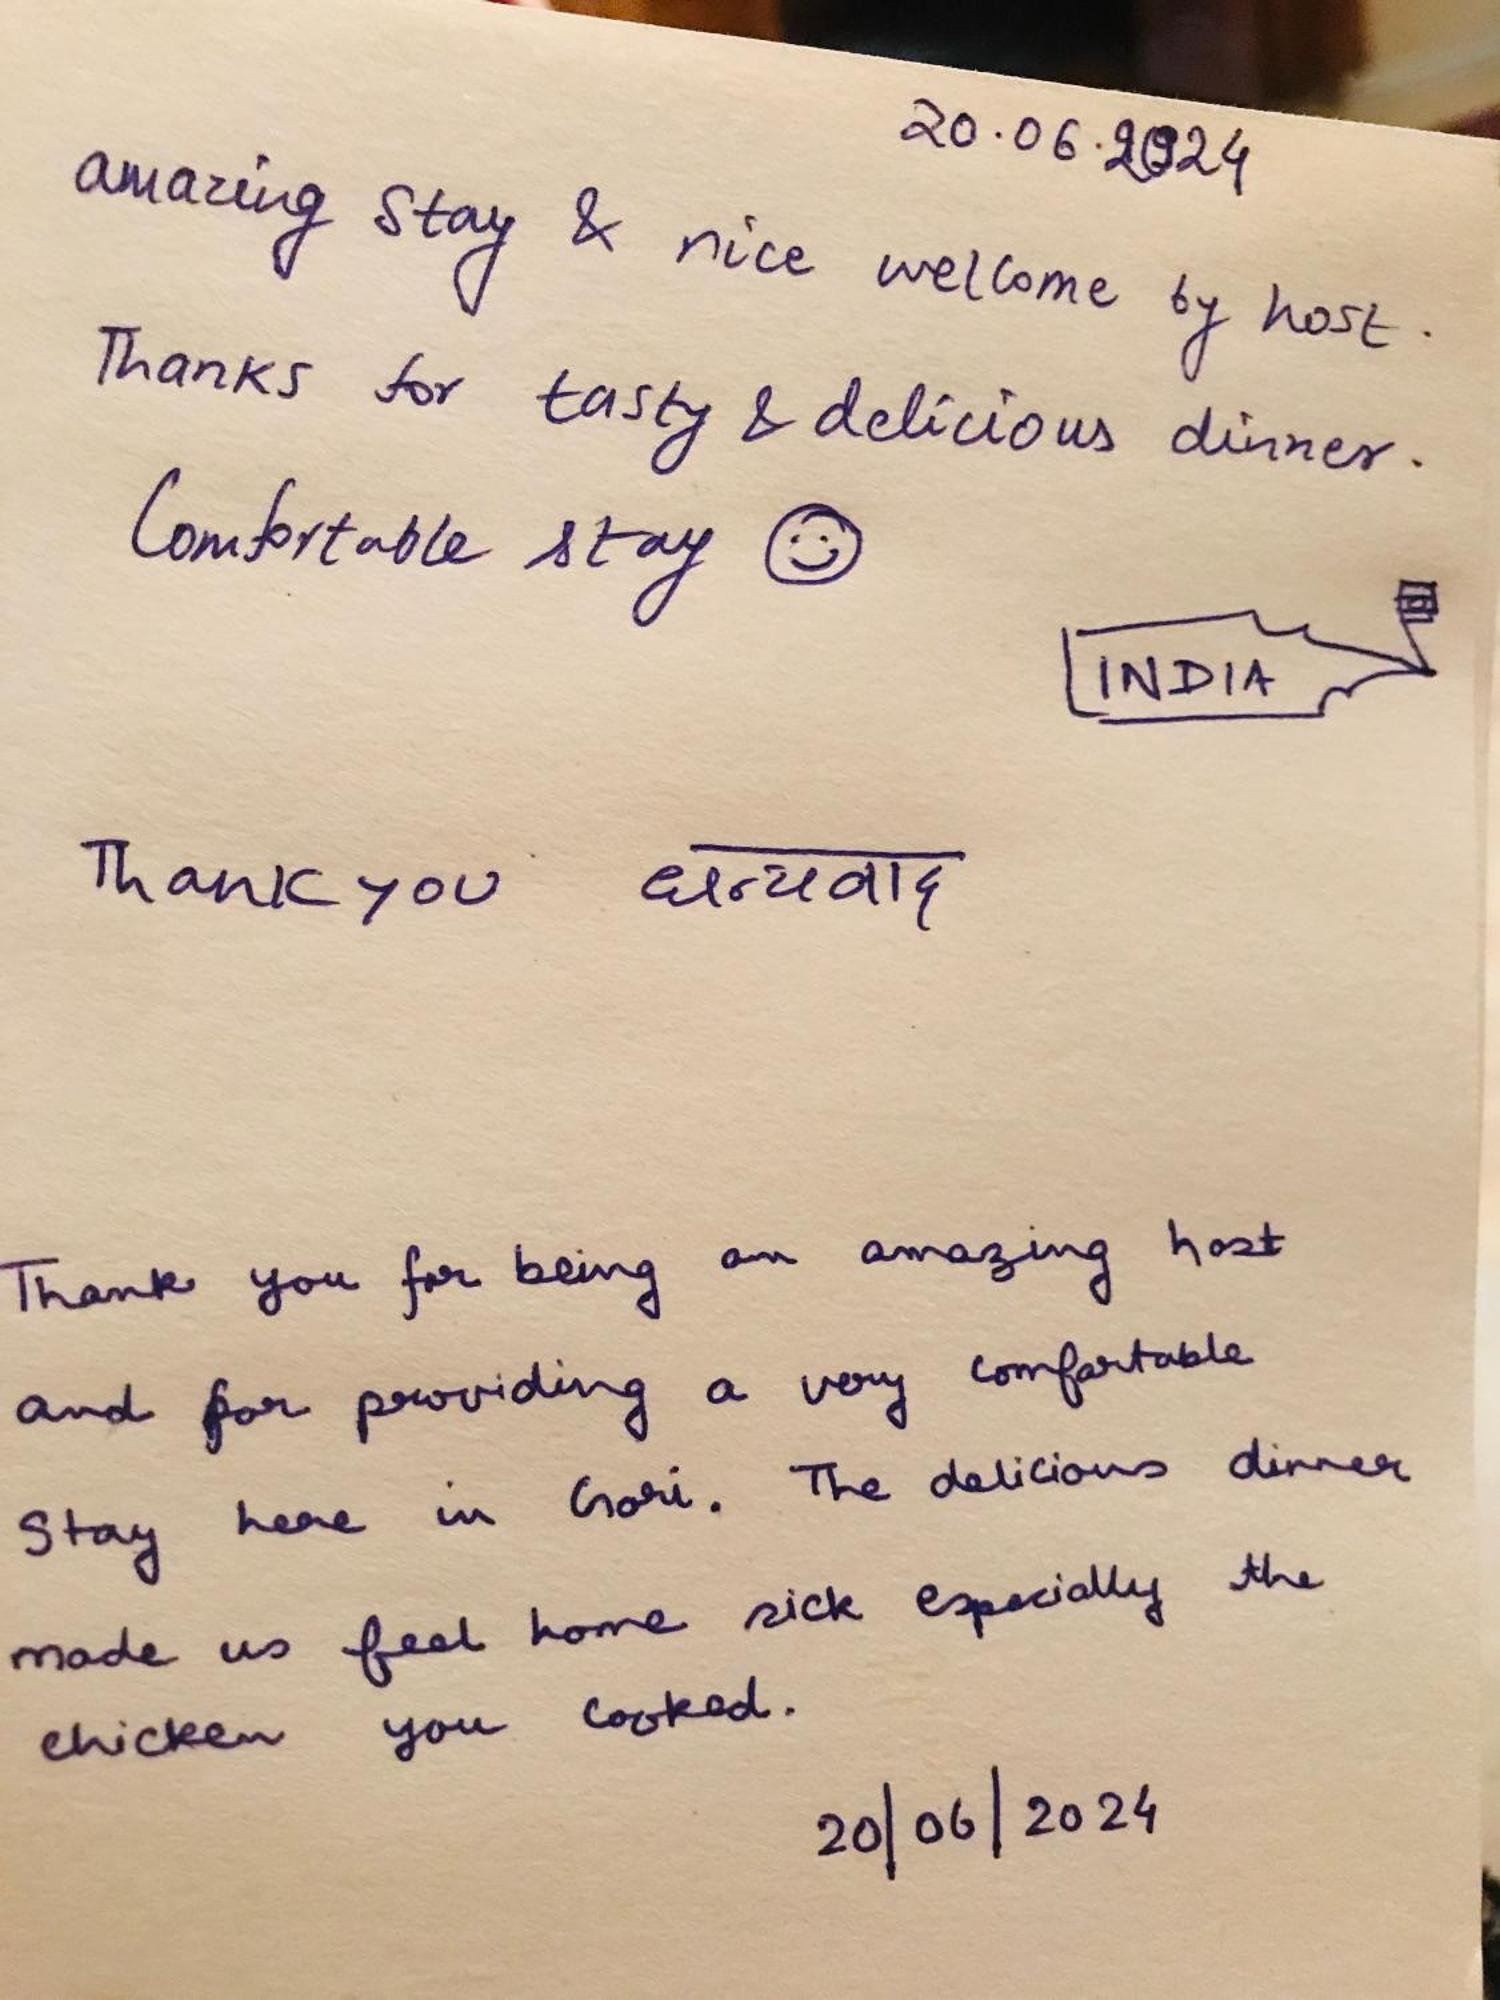 20.06.2024
amazing stay & nice welcome by host.
Thanks for tasty & delicious dinner.
Comfortable stay
INDIA
Thank you धन्यवाद
Thank you for being an amazing host
and for providing a very comfortable
stay here in Gori. The delicious dinner
made us feel home sick especially the
chicken you cooked.
20/06/2024